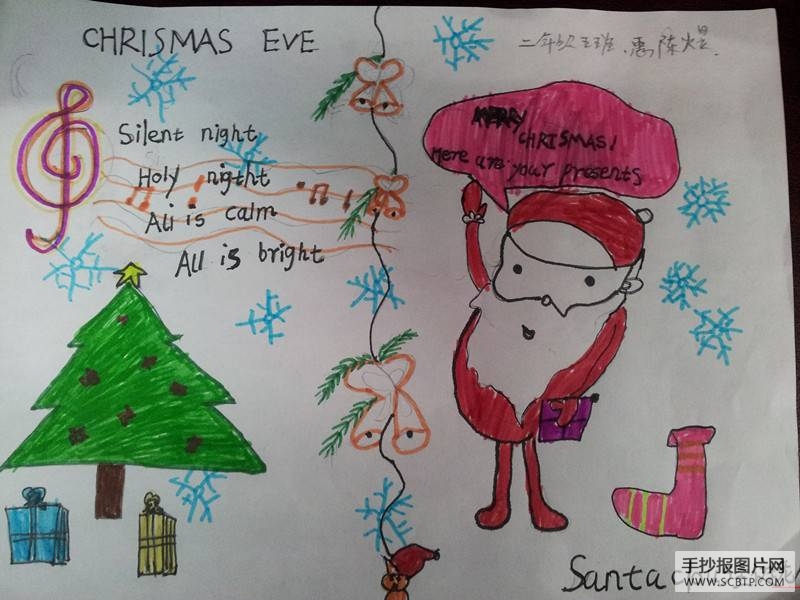 CHRISMAS EVE
二年级
Silent night
Holy night
All is calm
All is bright
MERRY
CHRISMAS!
Here are your presents
Santa
手抄报图片网
WWW.SCBTP.COM